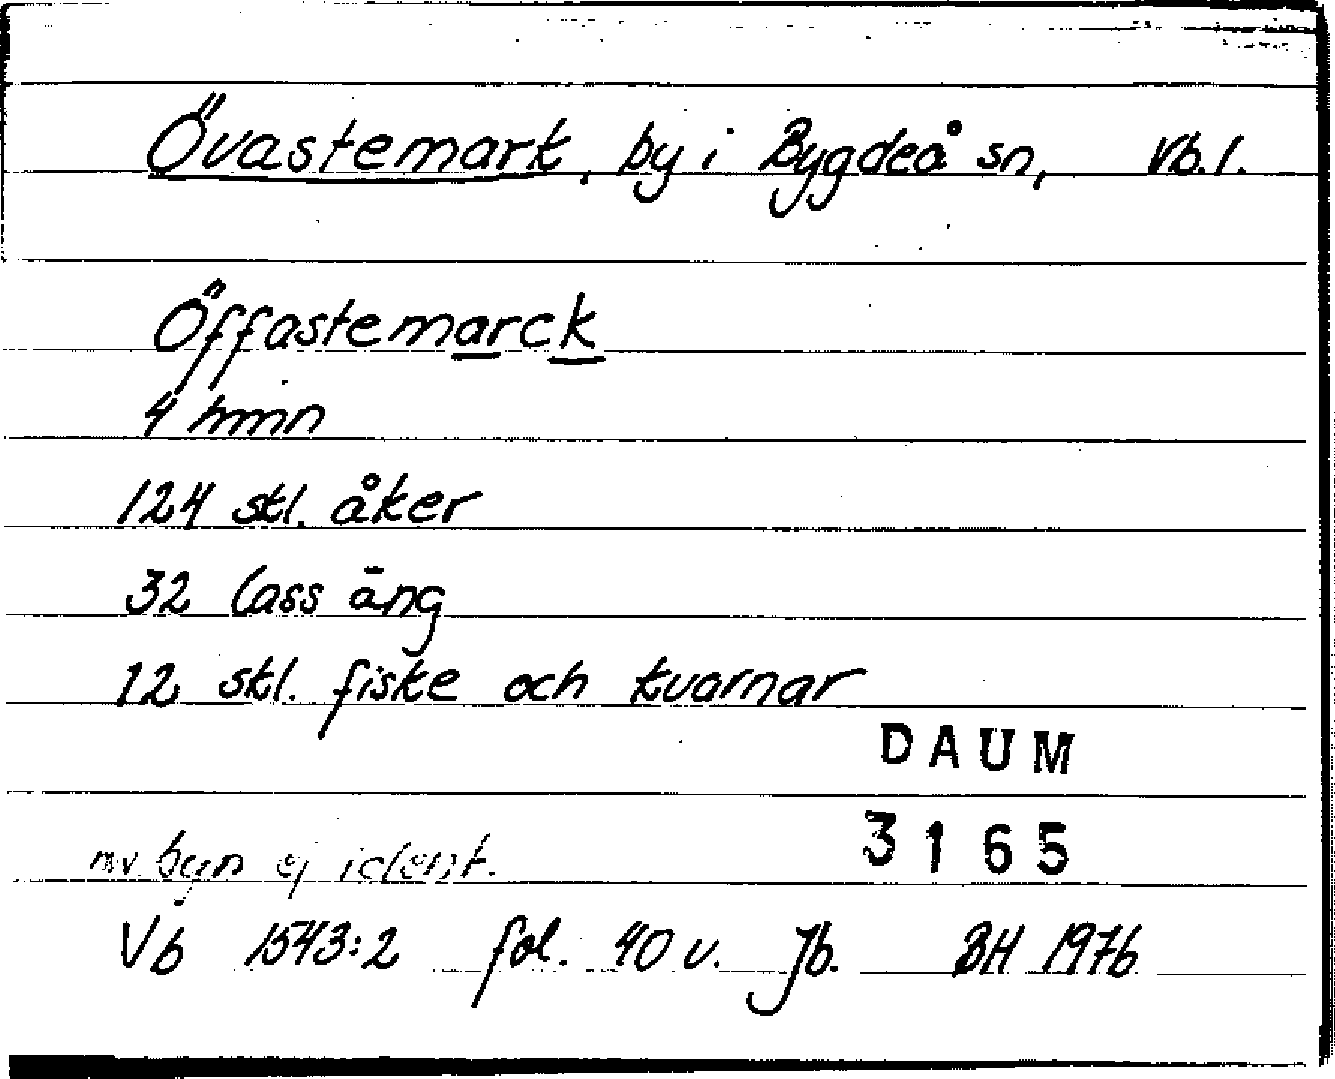 Övastemark, by i Bygdeå sn, Vb.l.
Öffastemarck
4 hmn
124 skl. åker
32 lass äng
12 skl. fiske och kvarnar
DAUM
3165
nuv. byn ej ident.
Vb 1543:2 fol. 40 v. Jb. BH 1976